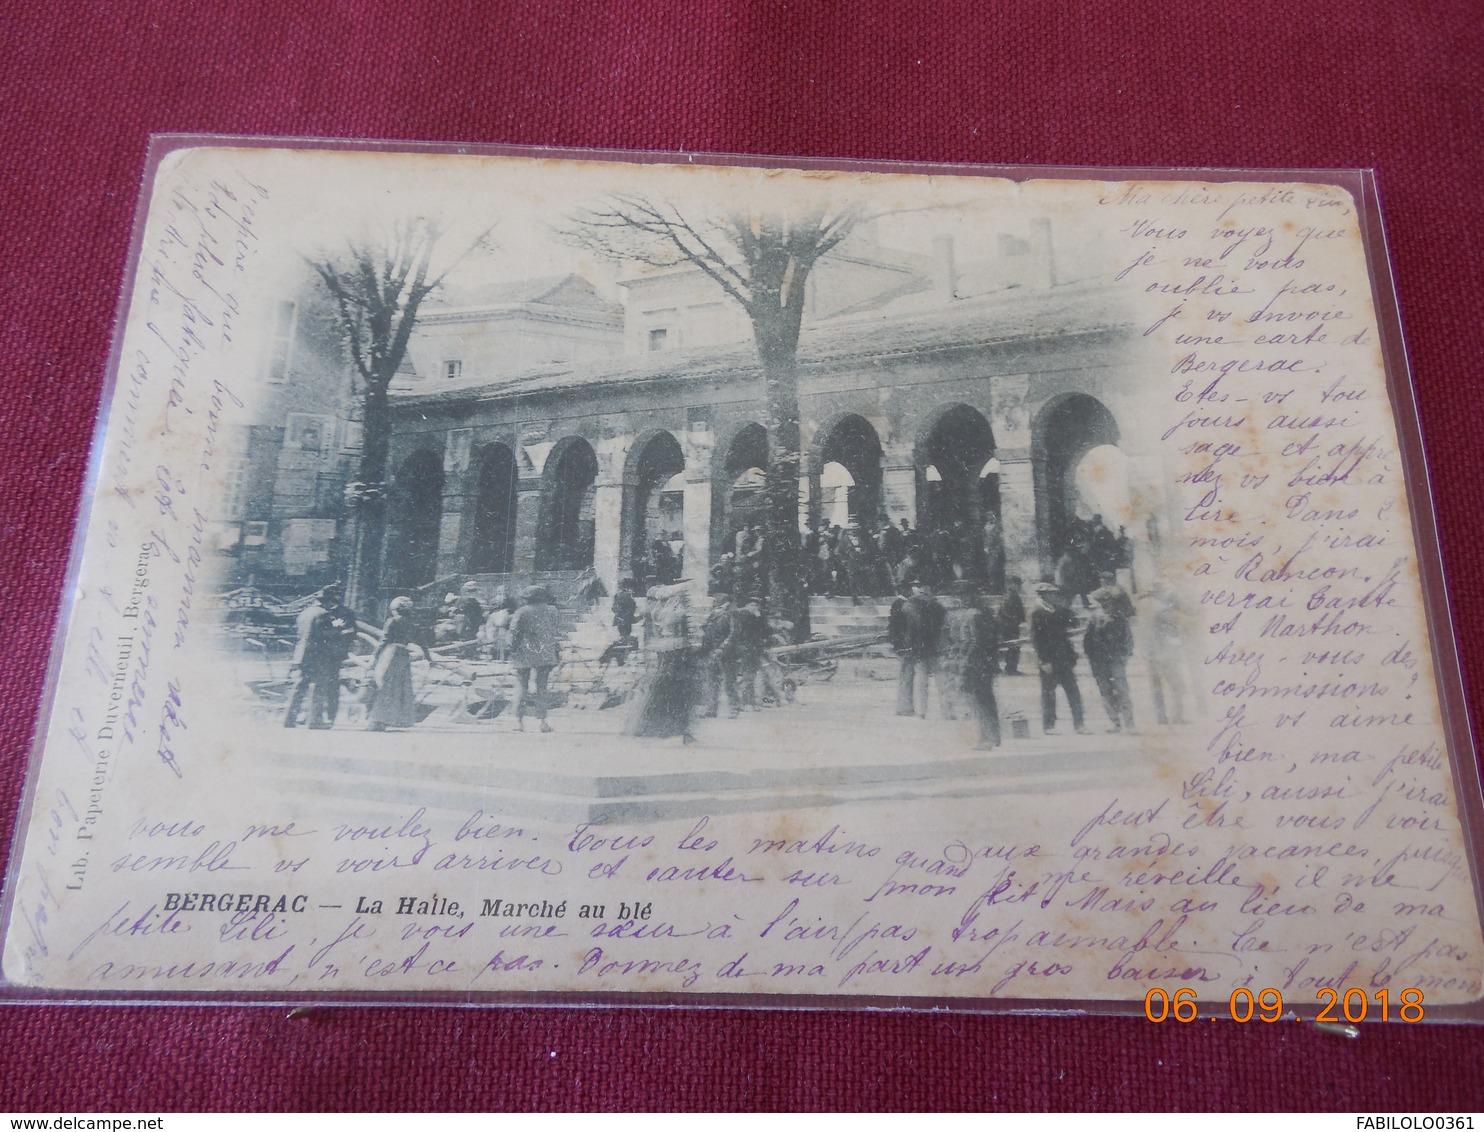 Ma chère petite Lili,
Vous voyez que
je ne vous
oublie pas,
je vs envoie
une carte de
Bergerac.
Etes-vs tou
jours aussi
sage et appre
nez vs bien à
lire. Dans 2
mois, j'irai
à Rancon. Je
verrai Tante
et Marthon.
Avez-vous des
commissions?
Je vs aime
bien, ma petite
Lili, aussi j'irai
peut être vous voir
aux grandes vacances, puisque
vous me voulez bien. Tous les matins quand je me réveille, il me
semble vs voir arriver et sauter sur mon lit. Mais au lieu de ma
petite Lili, je vois une sœur à l'air pas trop aimable. Ce n'est pas
amusant, n'est ce pas. Donnez de ma part un gros baiser à tout le monde
J'espère que bonne maman n'est
pas plus fatiguée.
BERGERAC — La Halle, Marché au blé
Lib. Papeterie Duverneuil, Bergerac
06.09.2018
FABILOLO0361